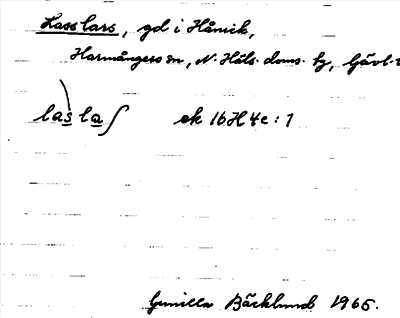 Lasslars, gd i Hånick,
Harmångers sn, N. Häls. doms. hg, Gävl.
laslaʃ ek 16H4e:1
Gunilla Bäcklund 1965.